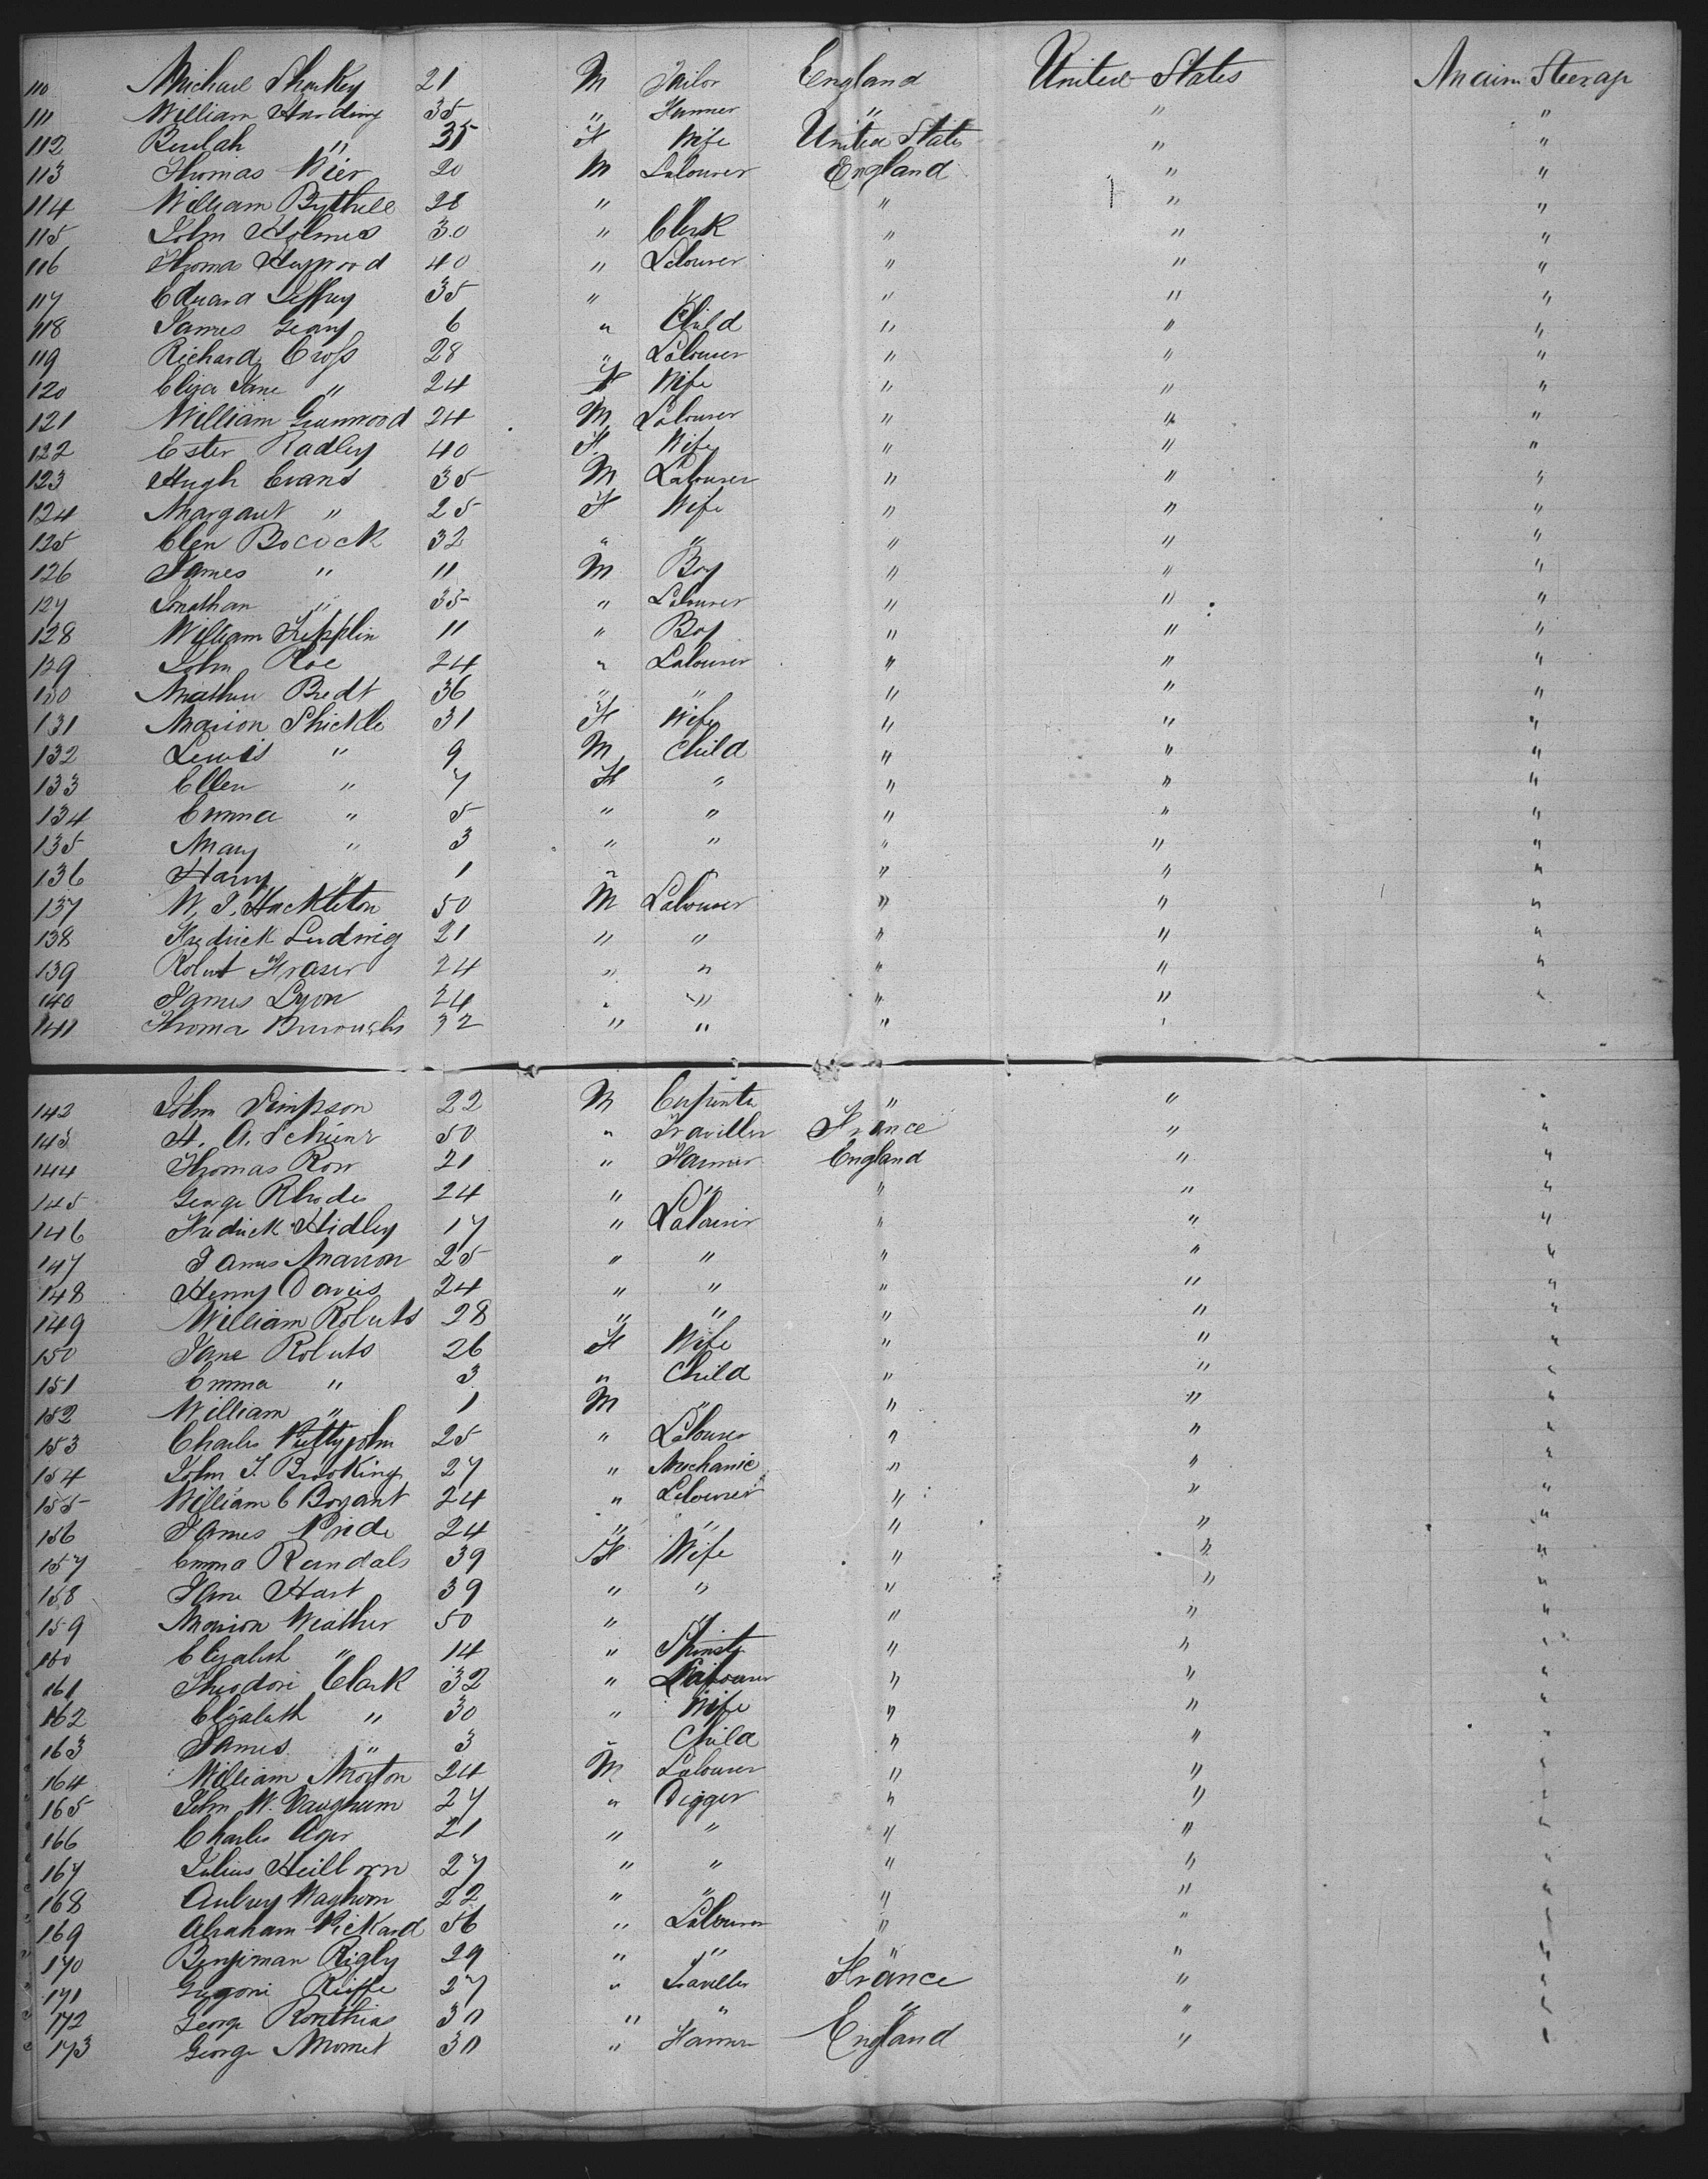 110 Michael Sharkey 21 M Tailor England United States Main Steerage
111 William Harding 35 " Farmer " " "
112 Beulah " 35 F Wife United States " "
113 Thomas Wier 20 M Labourer England " "
114 William Bythell 28 " " " " "
115 John Holmes 30 " Clerk " " "
116 Thomas Heywood 40 " Labourer " " "
117 Edward Jeffrey 35 " " " " "
118 James Geary 6 " Child " " "
119 Richard Cross 28 " Labourer " " "
120 Eliza Jane " 24 F Wife " " "
121 William Greenwood 24 M Labourer " " "
122 Ester Radley 40 F Wife " " "
123 Hugh Evans 35 M Labourer " " "
124 Margaret " 25 F Wife " " "
125 Elen Bocock 32 " " " " "
126 James " 11 M Boy " " "
127 Jonathan " 35 " Labourer " " "
128 William 11 " Boy " " "
129 John Roe 24 " Labourer " " "
130 Mathew Bredt 36 " " " " "
131 Marion Shickle 31 F Wife " " "
132 Lewis " 9 M Child " " "
133 Ellen " 7 F " " " "
134 Emma " 5 " " " " "
135 Mary " 3 " " " " "
136 Harry " 1 " " " " "
137 W. J. Hackleton 50 M Labourer " " "
138 Fredrick Ludwig 21 " " " " "
139 Robert Fraser 24 " " " " "
140 James Lyon 24 " " " " "
141 Thomas Burroughs 32 " " " "
142 John Simpson 22 M Carpenter " " "
143 H. A. 50 " Traveller France " "
144 Thomas Row 21 " Farmer England " "
145 George Rhodes 24 " " " " "
146 Fredrick Hidley 17 " Labourer " " "
147 James Marron 25 " " " " "
148 Henry Davies 24 " " " " "
149 William Roberts 28 " " " " "
150 Jane Roberts 26 F Wife " " "
151 Emma " 3 " Child " " "
152 William " 1 M " " " "
153 Charles Prettyjohn 25 " Labourer " " "
154 John J. Brooking 27 " Mechanic " " "
155 William C Bryant 24 " Labourer " " "
156 James Pride 24 " " " " "
157 Emma Randals 39 F Wife " " "
158 Jane Hart 39 " " " " "
159 Marion Weather 50 " " " " "
160 Elizabeth " 14 " Spinster " " "
161 Theodore Clark 32 " Labourer " " "
162 Elizabeth " 30 " Wife " " "
163 James " 3 " Child " " "
164 William Morton 24 M Labourer " " "
165 John W. 27 " Digger " " "
166 Charles Ager 21 " " " " "
167 Julius Heilborn 27 " " " " "
168 Aubrey Waghorn 22 " " " " "
169 Abraham Pickard 56 " Labourer " " "
170 Benjiman Rigby 29 " " " " "
171 27 " Traveller France " "
172 George 30 " " " " "
173 George Momet 30 " Farmer England " "